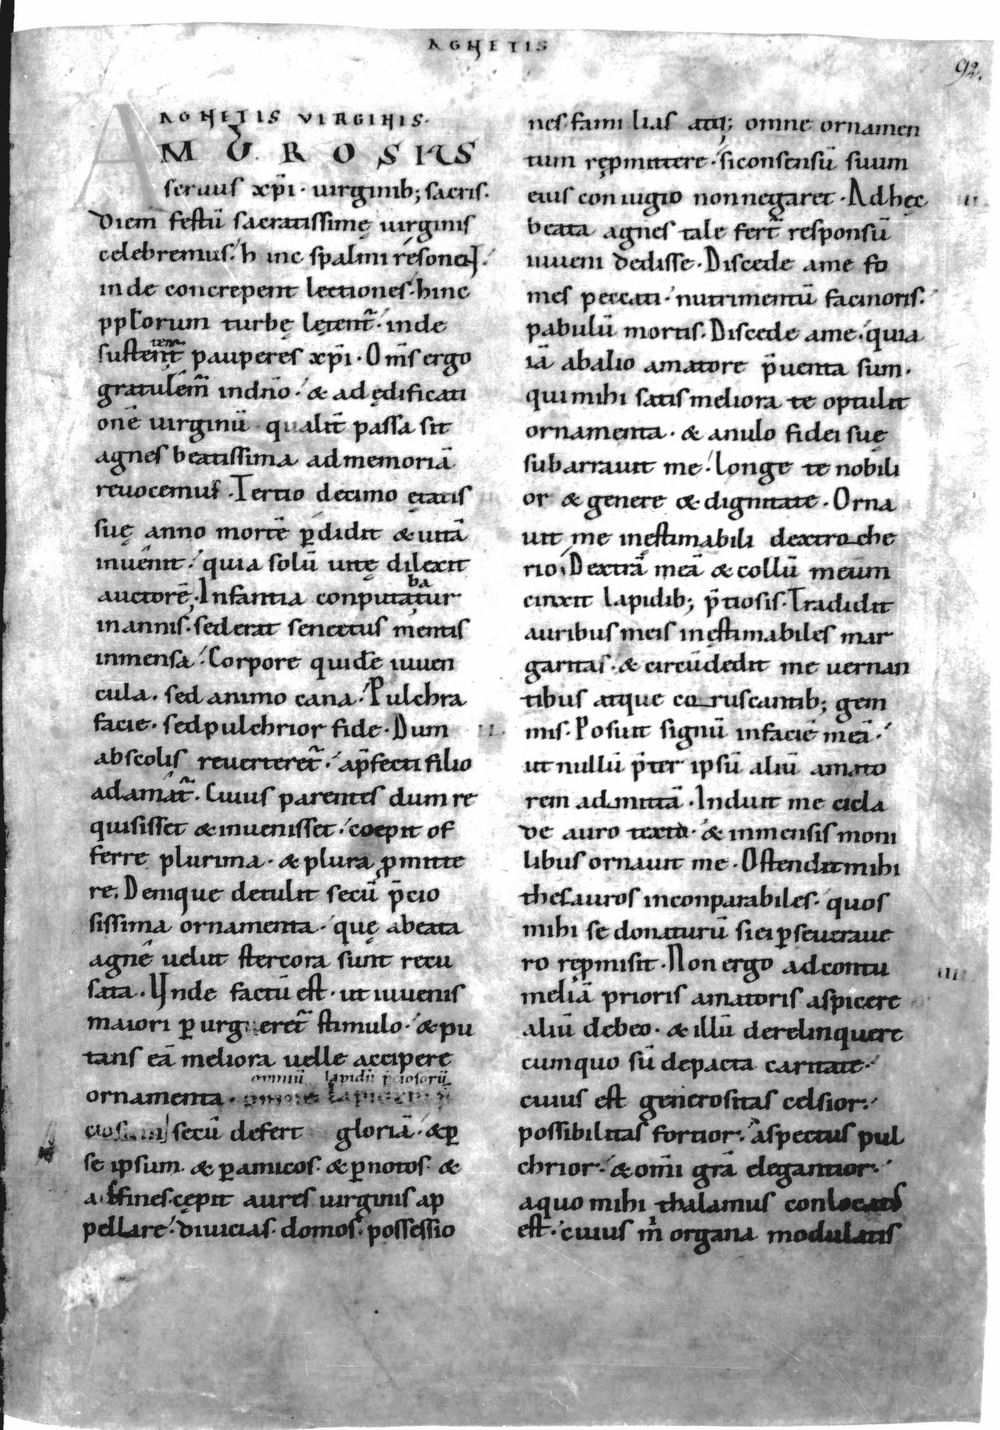 AGNETIS
92.
AGNETIS VIRGINIS.
AMBROSIUS
seruus xp̄i · uirginib; sacris.
Diem festū sacratissimę uirginis
celebremus. hinc spalmi résonent.
inde concrepent lectiones. hinc
ppl̄orum turbę lętent᷑. inde
sustentent᷑ pauperes xp̄i. Om̄s ergo
gratulem᷑ in dn̄o. & ad ędificati
onē uirginū qualit᷑ passa sit
agnes beatissima ad memoriā
reuocemus. Tertio decimo ętatis
suę anno mortē ꝑdidit & uitā
inuenit. quia solū uitę dilexit
auctorē. Infantia conputabatur
in annis. sed erat senectus mentis
inmensa. Corpore quidē iuuen
cula. sed animo cana. Pulchra
facie. sed pulchrior fide. Dum
a scolis reuerteret᷑. a p̄fecti filio
adamat᷑. Cuius parentes dum re
quisisset & inuenisset. coepit of
ferre plurima. & plura ꝓmitte
re. Denique detulit secū p̄cio
sissima ornamenta. quę a beata
agne uelut stercora sunt recu
sata. Unde factū est. ut iuuenis
maiori ꝑurgueret᷑ stimulo. & pu
tans eā meliora uelle accipere
omniū lapidū p̄ciosorū
ornamenta.
secū defert gloriā. & ꝑ
se ipsum. & ꝑ amicos. & ꝑ notos. &
affines. cępit aures uirginis ap
pellare. diuicias. domos. possessio
nes. familias atq; omne ornamen
tum rępmittere. si consensū suum
eius coniugio non negaret. Ad hęc
beata agnes tale fert᷑ responsū
iuueni dedisse. Discede a me fo
mes peccati. nutrimentū facinoris.
pabulū mortis. Discede a me. quia
iā ab alio amatore p̄uenta sum.
qui mihi satis meliora te optulit
ornamenta. & anulo fidei suę
subarrauit me. longe te nobili
or & genere & dignitate. Orna
uit me inęstimabili dextroche
rio. Dextrā meā & collū meum
cinxit lapidib; p̄tiosis. Tradidit
auribus meis inęstimabiles mar
garitas. & circūdedit me uernan
tibus atque coruscantib; gem
mis. Posuit signū in facie meā.
ut nullū p̄ter ipsū aliū amato
rem admittā. Induit me cicla
de auro texta. & inmensis moni
libus ornauit me. Ostendit mihi
thesauros inconparabiles. quos
mihi se donaturū si ei ꝑseuraue
ro rępmisit. Non ergo ad contu
meliā prioris amatoris aspicere
aliū debeo. & illū derelinquere
cum quo sū depacta caritate.
cuius est generositas celsior.
possibilitas fortior. aspectus pul
chrior. & om̄i grā elegantior.
a quo mihi thalamus conlocatus
est. cuius m̄ organa modulatis